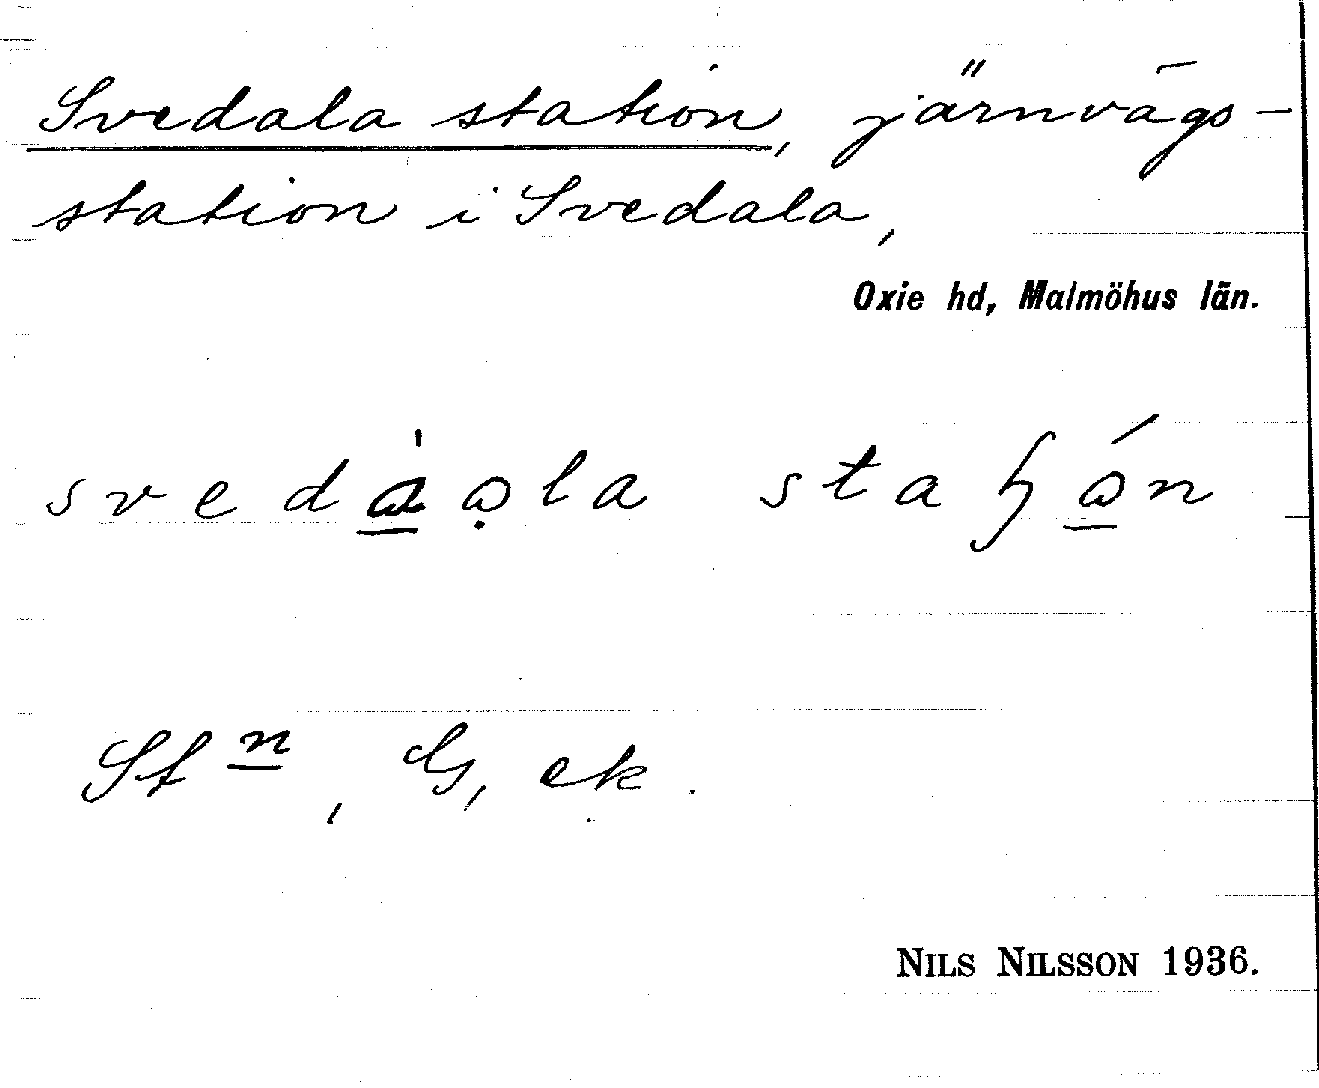 Svedala station, järnvägs-
station i Svedala,
Oxie hd, Malmöhus län.
svedàɷla staɧɷ́n
Stn, G, ek.
NILS NILSSON 1936.